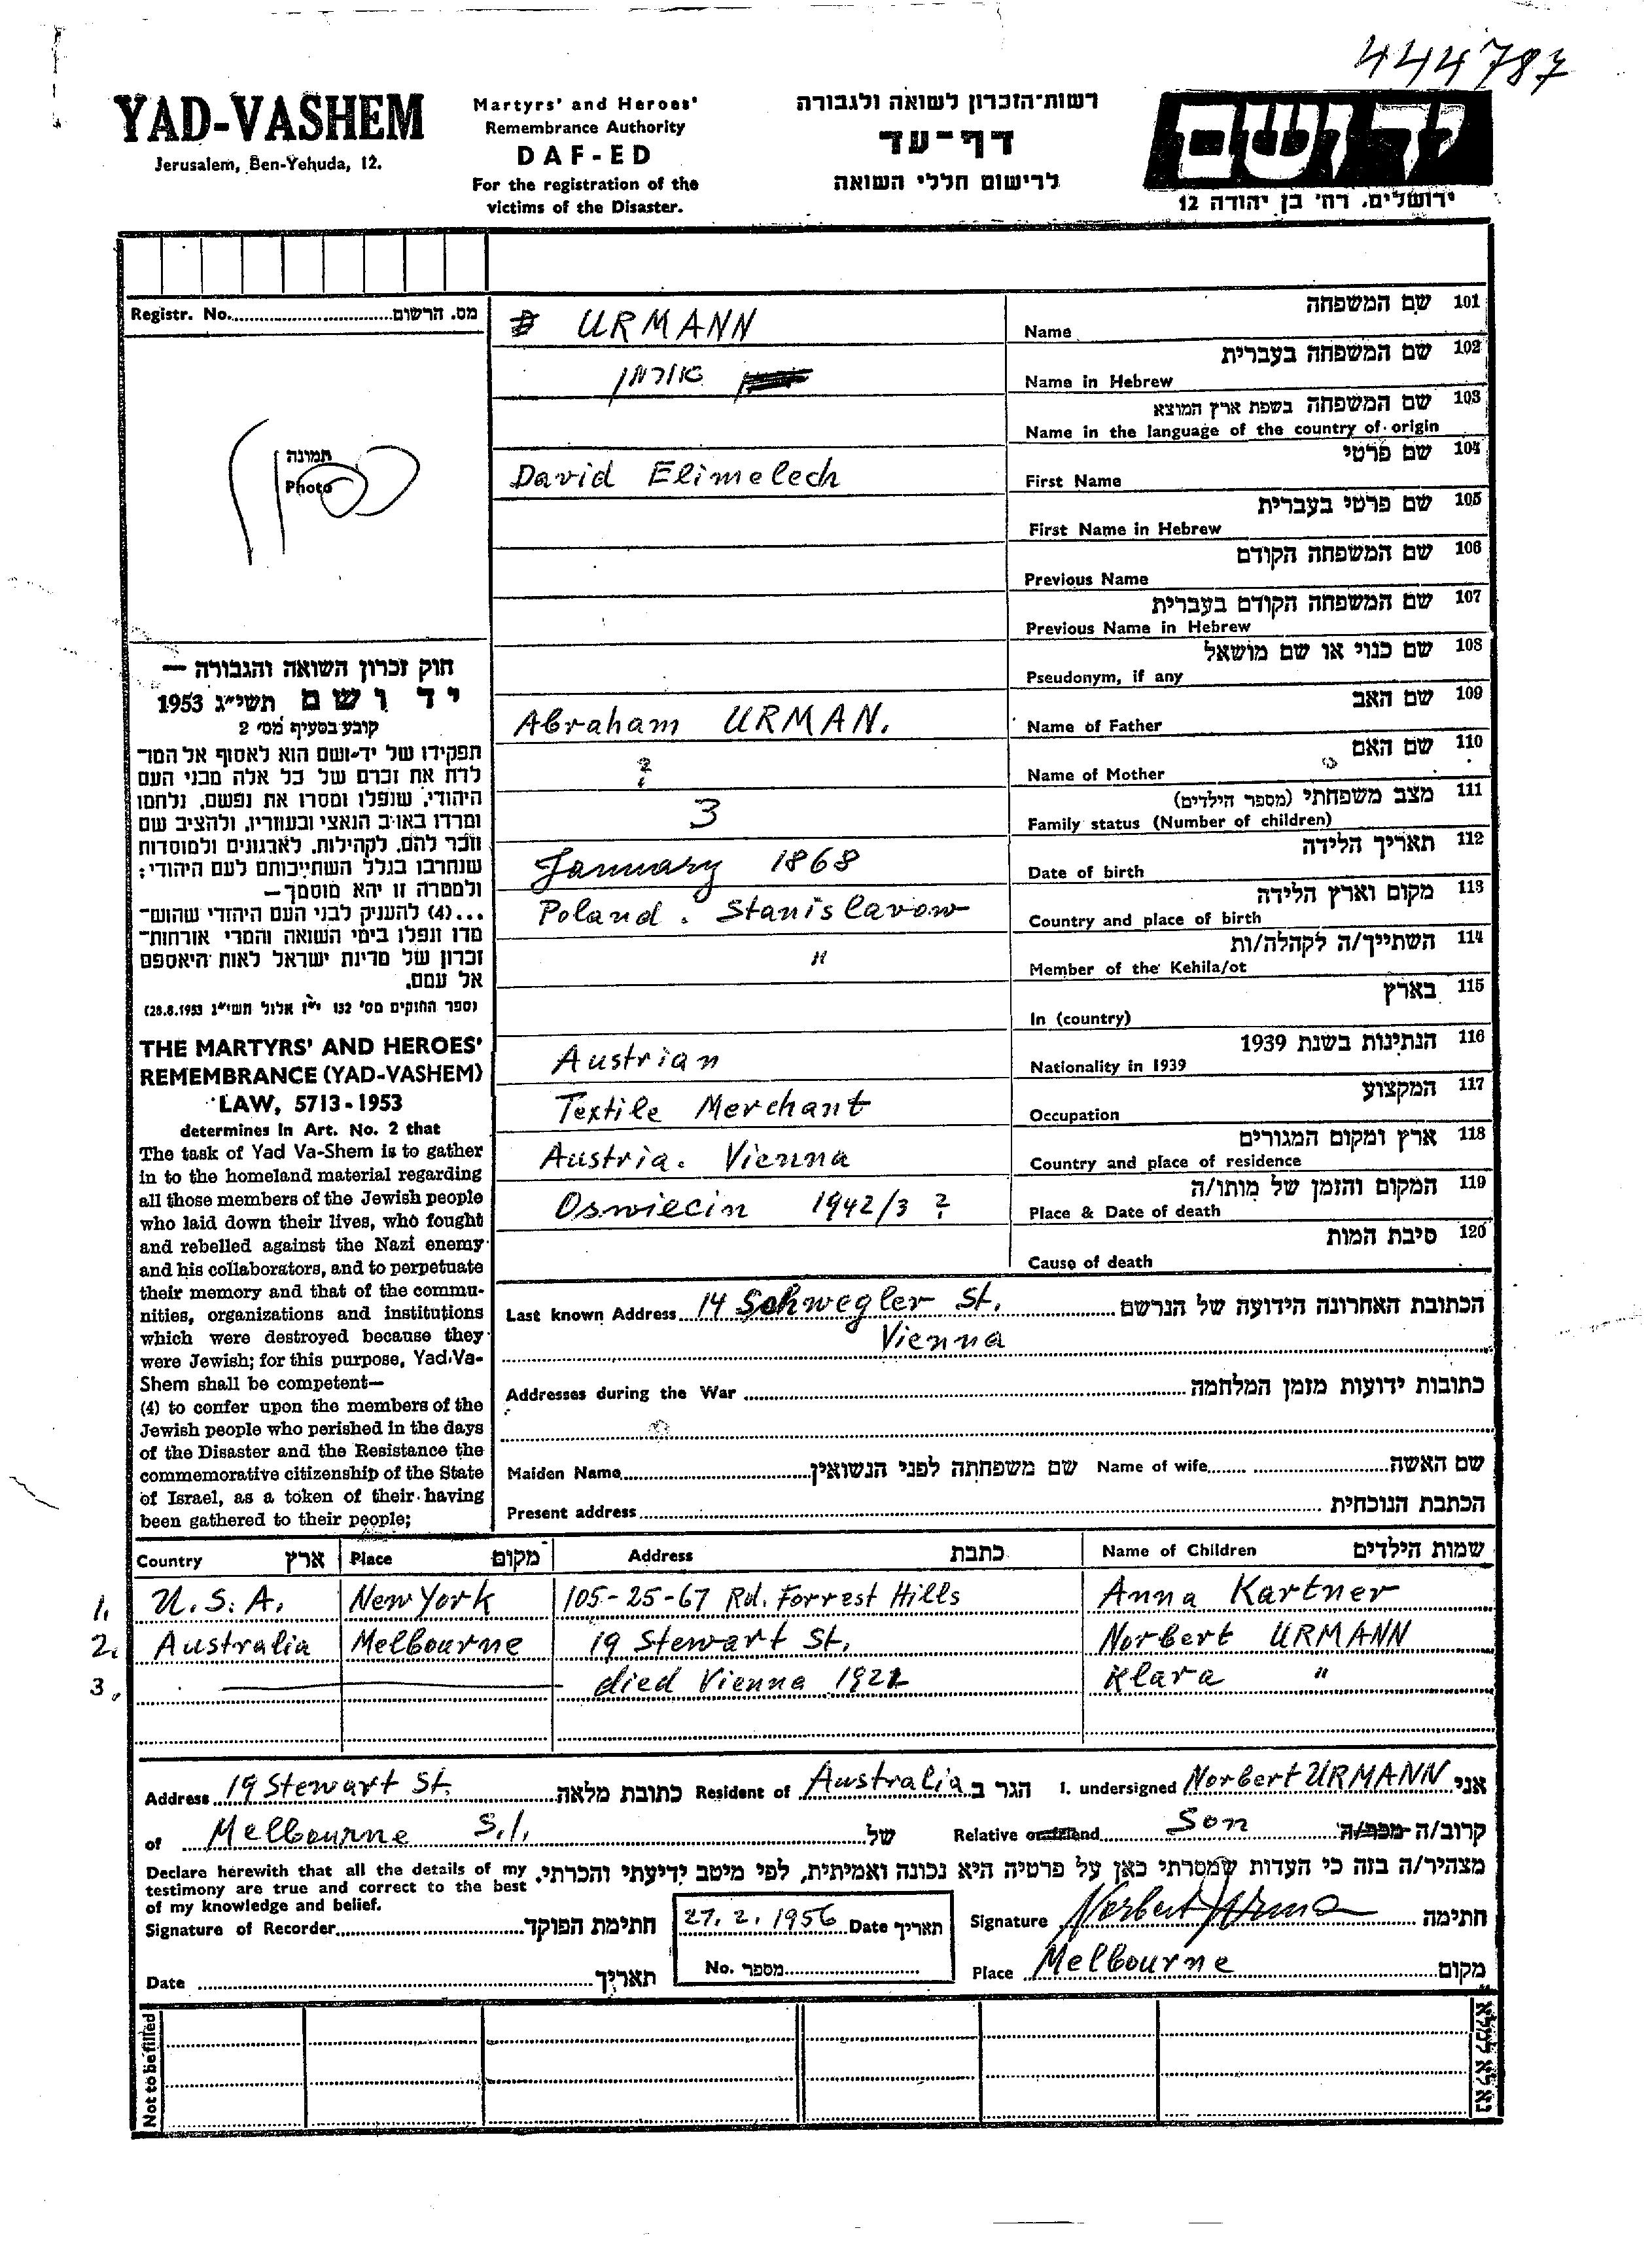 444787
YAD-VASHEM
Jerusalem, Ben-Yehuda, 12.
Martyrs' and Heroes'
Remembrance Authority
DAF-ED
For the registration of the
victims of the Disaster.
רשות-הזכרון לשואה ולגבורה
דף-עד
לרישום חללי השואה
יד ושם
ירושלים, רח' בן יהודה 12
Registr. No. מס. הרשום
תמונה
Photo
חוק זכרון השואה והגבורה —
יד ושם תשי״ג 1953
קובע בסעיף מס׳ 2
תפקידו של יד-ושם הוא לאסוף אל המו־
לדת את זכרם של כל אלה מבני העם
היהודי, שנפלו ומסרו את נפשם, נלחמו
ומרדו באויב הנאצי ובעוזריו, ולהציב שם
וזכר להם, לקהילות, לארגונים ולמוסדות
שנחרבו בגלל השתייכותם לעם היהודי;
ולמטרה זו יהא מוסמך—
...(4) להעניק לבני העם היהודי שהוש־
מדו ונפלו בימי השואה והמרי אזרחות־
זכרון של מדינת ישראל לאות היאספם
אל עמם.
(ספר החוקים מס׳ 132 י״ז אלול תשי״ג 28.8.1953)
THE MARTYRS' AND HEROES'
REMEMBRANCE (YAD-VASHEM)
LAW, 5713-1953
determines in Art. No. 2 that
The task of Yad Va-Shem is to gather
in to the homeland material regarding
all those members of the Jewish people
who laid down their lives, who fought
and rebelled against the Nazi enemy
and his collaborators, and to perpetuate
their memory and that of the commu-
nities, organizations and institutions
which were destroyed because they
were Jewish; for this purpose, Yad-Va-
Shem shall be competent—
(4) to confer upon the members of the
Jewish people who perished in the days
of the Disaster and the Resistance the
commemorative citizenship of the State
of Israel, as a token of their having
been gathered to their people;
URMANN Name שם המשפחה 101
אורמן Name in Hebrew שם המשפחה בעברית 102
Name in the language of the country of origin שם המשפחה בשפת ארץ המוצא 103
David Elimelech First Name שם פרטי 104
First Name in Hebrew שם פרטי בעברית 105
Previous Name שם המשפחה הקודם 106
Previous Name in Hebrew שם המשפחה הקודם בעברית 107
Pseudonym, if any שם כנוי או שם מושאל 108
Abraham URMAN. Name of Father שם האב 109
? Name of Mother שם האם 110
3 Family status (Number of children) מצב משפחתי (מספר הילדים) 111
January 1868 Date of birth תאריך הלידה 112
Poland. Stanislavow Country and place of birth מקום וארץ הלידה 113
" Member of the Kehila/ot השתייך/ה לקהלה/ות 114
In (country) בארץ 115
Austrian Nationality in 1939 הנתינות בשנת 1939 116
Textile Merchant Occupation המקצוע 117
Austria. Vienna Country and place of residence ארץ ומקום המגורים 118
Oswiecin 1942/3 ? Place & Date of death המקום והזמן של מותו/ה 119
Cause of death סיבת המות 120
Last known Address 14 Schwegler St. הכתובת האחרונה הידועה של הנרשם
Vienna
Addresses during the War כתובות ידועות מזמן המלחמה
Maiden Name שם משפחתה לפני הנשואין Name of wife שם האשה
Present address הכתבת הנוכחית
Country ארץ Place מקום Address כתבת Name of Children שמות הילדים
1. U.S.A. New York 105-25-67 Rd. Forrest Hills Anna Kartner
2. Australia Melbourne 19 Stewart St. Norbert URMANN
3. died Vienna 1921 Klara "
Address 19 Stewart St. כתובת מלאה Resident of Australia הגר ב I. undersigned Norbert URMANN אני
of Melbourne S.1. של Relative or friend Son קרוב/ה מכר/ה
Declare herewith that all the details of my
testimony are true and correct to the best
of my knowledge and belief.
מצהיר/ה בזה כי העדות שמסרתי כאן על פרטיה היא נכונה ואמיתית, לפי מיטב ידיעתי והכרתי.
Signature of Recorder חתימת הפוקד 27.2.1956 Date תאריך Signature Norbert Urmann חתימה
Date תאריך No. מספר Place Melbourne מקום
Not to be filled נא לא למלא